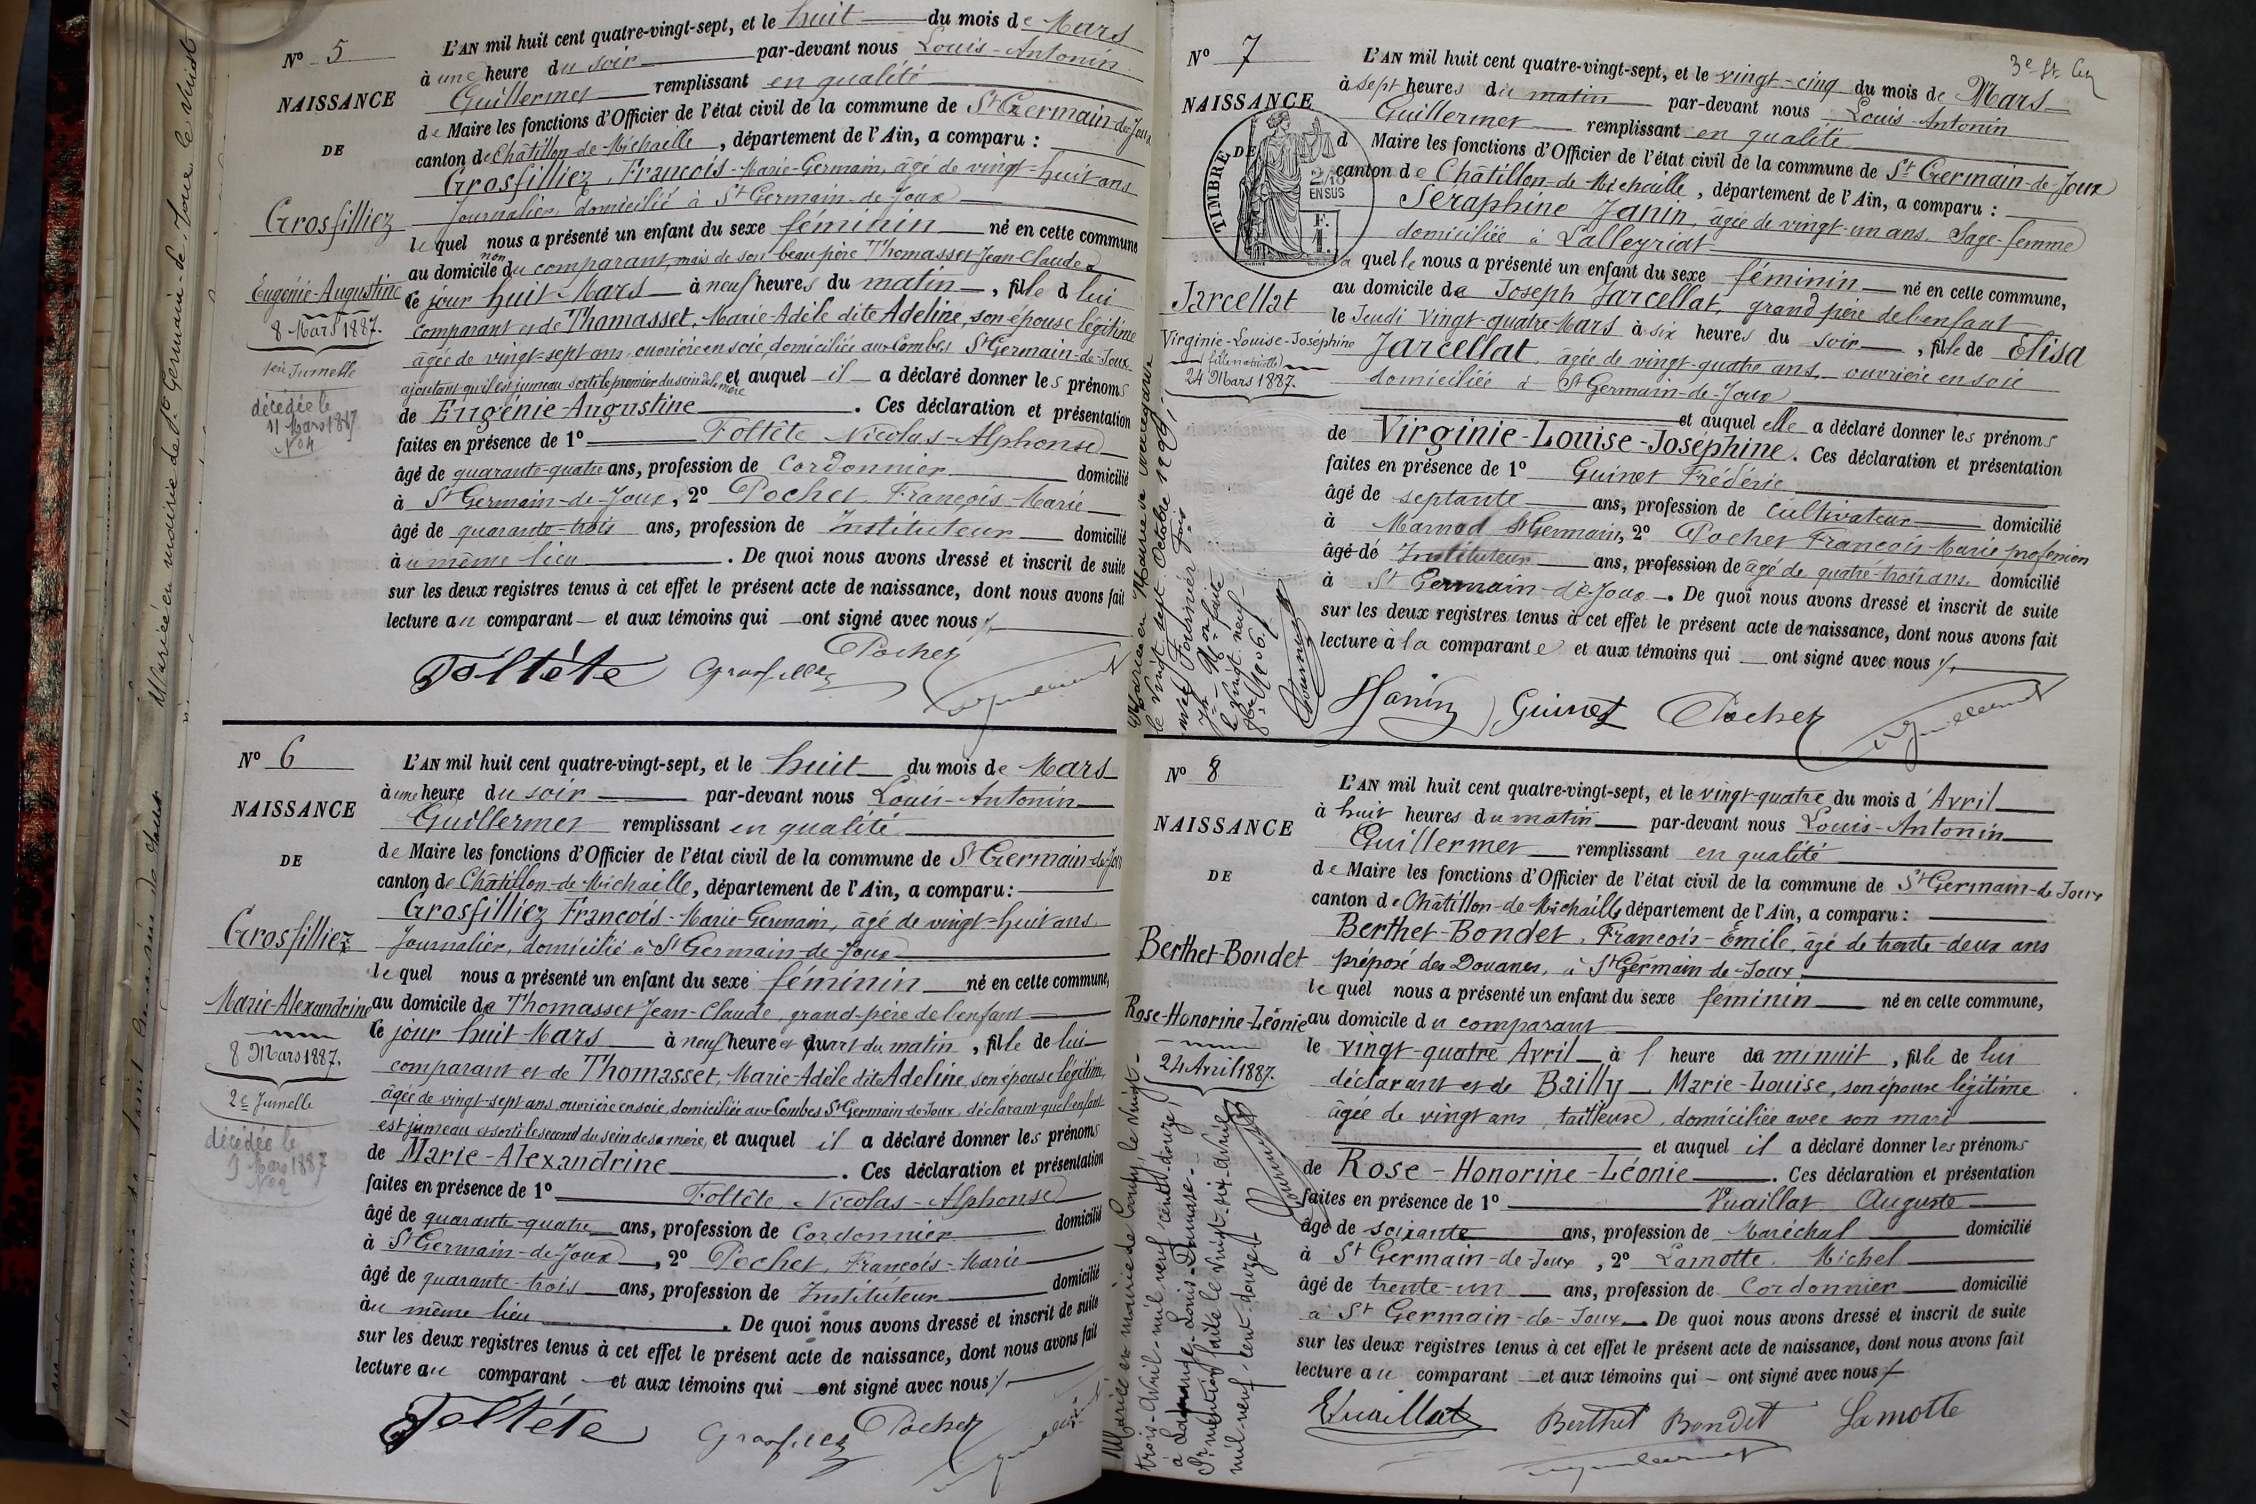 Nº 5
NAISSANCE
DE
Grosfilliez
Eugénie-Augustine
8 Mars 1887.
1ère Jumelle
décédée le
11 Mars 1887
Nº 4
L'AN mil huit cent quatre-vingt-sept, et le huit du mois de Mars
à une heure du soir par-devant nous Louis-Antonin
Guillermet remplissant en qualité
de Maire les fonctions d'Officier de l'état civil de la commune de St Germain-de-Joux
canton de Châtillon-de-Michaille, département de l'Ain, a comparu :
Grosfilliez, François-Marie-Germain, âgé de vingt-huit ans
Journalier, domicilié à St Germain-de-Joux
lequel nous a présenté un enfant du sexe féminin né en cette commune
au domicile non du comparant, mais de son beau père Thomasset Jean-Claude
ce jour huit Mars à neuf heures du matin, fille de lui
comparant et de Thomasset, Marie-Adèle dite Adeline, son épouse légitime
âgée de vingt-sept ans, ouvrière en soie, domiciliée aux Combes St Germain-de-Joux
ajoutant qu'il est jumeau sorti le premier du sein de la mère et auquel il a déclaré donner les prénoms
de Eugénie-Augustine. Ces déclaration et présentation
faites en présence de 1º Foltête Nicolas-Alphonse
âgé de quarante-quatre ans, profession de Cordonnier domicilié
à St Germain-de-Joux, 2º Pochet François-Marie
âgé de quarante-trois ans, profession de Instituteur domicilié
au même lieu. De quoi nous avons dressé et inscrit de suite
sur les deux registres tenus à cet effet le présent acte de naissance, dont nous avons fait
lecture au comparant et aux témoins qui ont signé avec nous
Foltête Grosfillez Pochet
Nº 6
NAISSANCE
DE
Grosfilliez
Marie-Alexandrine
8 Mars 1887.
2e Jumelle
décédée le
9 Mars 1887
Nº 2
L'AN mil huit cent quatre-vingt-sept, et le huit du mois de Mars
à une heure du soir par-devant nous Louis-Antonin
Guillermet remplissant en qualité
de Maire les fonctions d'Officier de l'état civil de la commune de St Germain-de-Joux
canton de Châtillon-de-Michaille, département de l'Ain, a comparu :
Grosfilliez François-Marie Germain, âgé de vingt-huit ans
Journalier, domicilié à St Germain-de-Joux
lequel nous a présenté un enfant du sexe féminin né en cette commune,
au domicile de Thomasset Jean-Claude, grand-père de l'enfant
ce jour huit Mars à neuf heure et quart du matin, fille de lui
comparant et de Thomasset, Marie-Adèle dite Adeline, son épouse légitime,
âgée de vingt-sept ans, ouvrière en soie, domiciliée aux Combes St Germain-de-Joux, déclarant que l'enfant
est jumeau et sorti le second du sein de sa mère, et auquel il a déclaré donner les prénoms
de Marie-Alexandrine. Ces déclaration et présentation
faites en présence de 1º Foltête, Nicolas-Alphonse
âgé de quarante-quatre ans, profession de Cordonnier domicilié
à St Germain-de-Joux, 2º Pochet, François-Marie
âgé de quarante-trois ans, profession de Instituteur domicilié
au même lieu. De quoi nous avons dressé et inscrit de suite
sur les deux registres tenus à cet effet le présent acte de naissance, dont nous avons fait
lecture au comparant et aux témoins qui ont signé avec nous
Foltête Grosfillez Pochet
3e
Nº 7
NAISSANCE
DE
TIMBRE
2/10
EN SUS
F.
1.
Jarcellat
Virginie-Louise-Joséphine
(fille naturelle)
24 Mars 1887.
L'AN mil huit cent quatre-vingt-sept, et le vingt-cinq du mois de Mars
à sept heures du matin par-devant nous Louis-Antonin
Guillermet remplissant en qualité
d Maire les fonctions d'Officier de l'état civil de la commune de St Germain-de-Joux
canton de Châtillon-de-Michaille, département de l'Ain, a comparu :
Séraphine Janin, âgée de vingt-un ans, Sage-femme
domiciliée à Lalleyriat
laquelle nous a présenté un enfant du sexe féminin né en cette commune,
au domicile de Joseph Jarcellat, grand père de l'enfant
le Jeudi vingt-quatre Mars à six heures du soir, fille de Elisa
Jarcellat, âgée de vingt-quatre ans, ouvrière en soie
domiciliée à St Germain-de-Joux
et auquel elle a déclaré donner les prénoms
de Virginie-Louise-Joséphine. Ces déclaration et présentation
faites en présence de 1º Guinet Frédéric
âgé de septante ans, profession de cultivateur domicilié
à Marnod St Germain, 2º Pochet François-Marie profession
âgé de Instituteur ans, profession de âgé de quatre-trois ans domicilié
à St Germain-de-Joux. De quoi nous avons dressé et inscrit de suite
sur les deux registres tenus à cet effet le présent acte de naissance, dont nous avons fait
lecture à la comparante et aux témoins qui ont signé avec nous
Janin Guinet Pochet
Nº 8
NAISSANCE
DE
Berthet-Bondet
Rose-Honorine-Léonie
24 Avril 1887.
Mariée en mairie de Coupy, le vingt-
trois-Avril-mil neuf cent douze,
à Louis
Pr mention faite le vingt-six Avril
mil-neuf-cent-douze
L'AN mil huit cent quatre-vingt-sept, et le vingt-quatre du mois d'Avril
à huit heures du matin par-devant nous Louis-Antonin
Guillermet remplissant en qualité
de Maire les fonctions d'Officier de l'état civil de la commune de St Germain-de-Joux
canton de Châtillon-de-Michaille, département de l'Ain, a comparu :
Berthet-Bondet, François-Émile, âgé de trente-deux ans
préposé des Douanes, à St Germain-de-Joux
lequel nous a présenté un enfant du sexe féminin né en cette commune,
au domicile du comparant
le vingt-quatre Avril à 1 heure de minuit, fille de lui
déclarant et de Bailly Marie-Louise, son épouse légitime
âgée de vingt ans, tailleuse, domiciliée avec son mari
et auquel il a déclaré donner les prénoms
de Rose-Honorine-Léonie. Ces déclaration et présentation
faites en présence de 1º Vuaillat Auguste
âgé de soixante ans, profession de Maréchal domicilié
à St Germain-de-Joux, 2º Lamotte Michel
âgé de trente-un ans, profession de Cordonnier domicilié
à St Germain-de-Joux. De quoi nous avons dressé et inscrit de suite
sur les deux registres tenus à cet effet le présent acte de naissance, dont nous avons fait
lecture au comparant et aux témoins qui ont signé avec nous
Vuaillat Berthet Bondet Lamotte